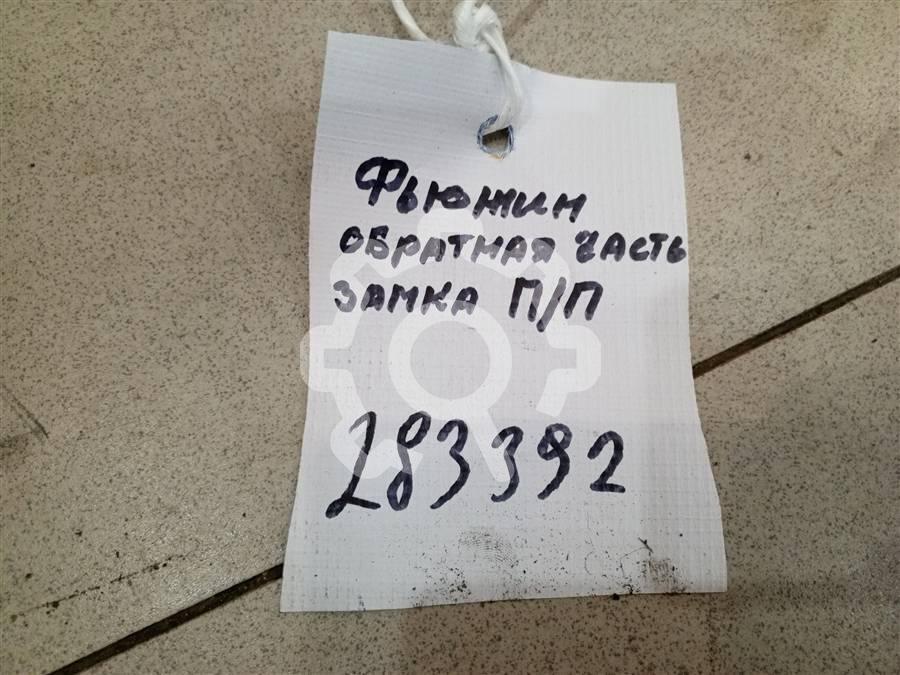 Фьюжин
обратная часть
замка П/П
283392